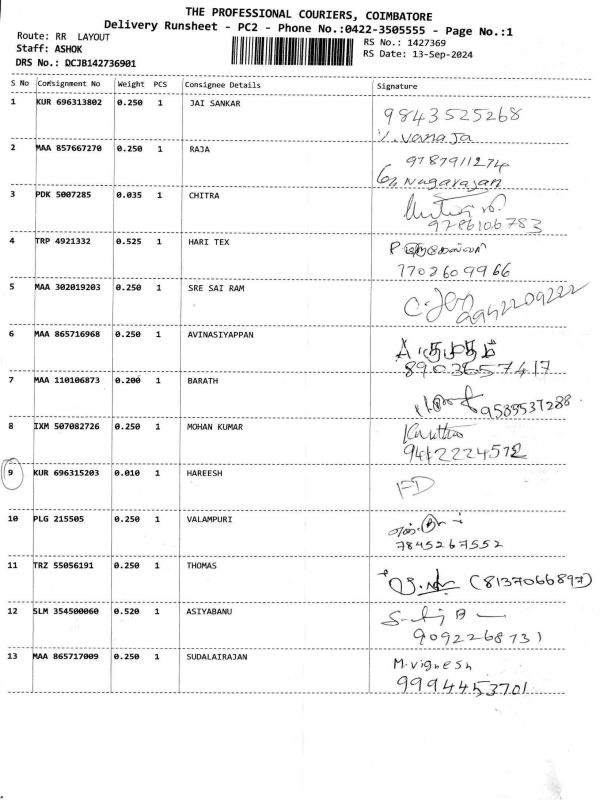 THE PROFESSIONAL COURIERS, COIMBATORE
Delivery Runsheet - PC2 - Phone No.:0422-3505555 - Page No.:1
Route: RR LAYOUT
RS No.: 1427369
Staff: ASHOK
RS Date: 13-Sep-2024
DRS No.: DCJB142736901
S No Consignment No Weight PCS Consignee Details Signature
1 KUR 696313802 0.250 1 JAI SANKAR 9843525268
V. Vanaja
2 MAA 857667270 0.250 1 RAJA 9787911274
Nagarajan
3 PDK 5007285 0.035 1 CHITRA
9786106783
4 TRP 4921332 0.525 1 HARI TEX
7702609966
5 MAA 302019203 0.250 1 SRE SAI RAM 9942209222
6 MAA 865716968 0.250 1 AVINASIYAPPAN
8903657417
7 MAA 110106873 0.200 1 BARATH
9585537288
8 IXM 507082726 0.250 1 MOHAN KUMAR
9442224572
9 KUR 696315203 0.010 1 HAREESH FD
10 PLG 215505 0.250 1 VALAMPURI
7845267552
11 TRZ 55056191 0.250 1 THOMAS (8137066897)
12 SLM 354500060 0.520 1 ASIYABANU
9092268731
13 MAA 865717009 0.250 1 SUDALAIRAJAN M.vignesh
9994453701